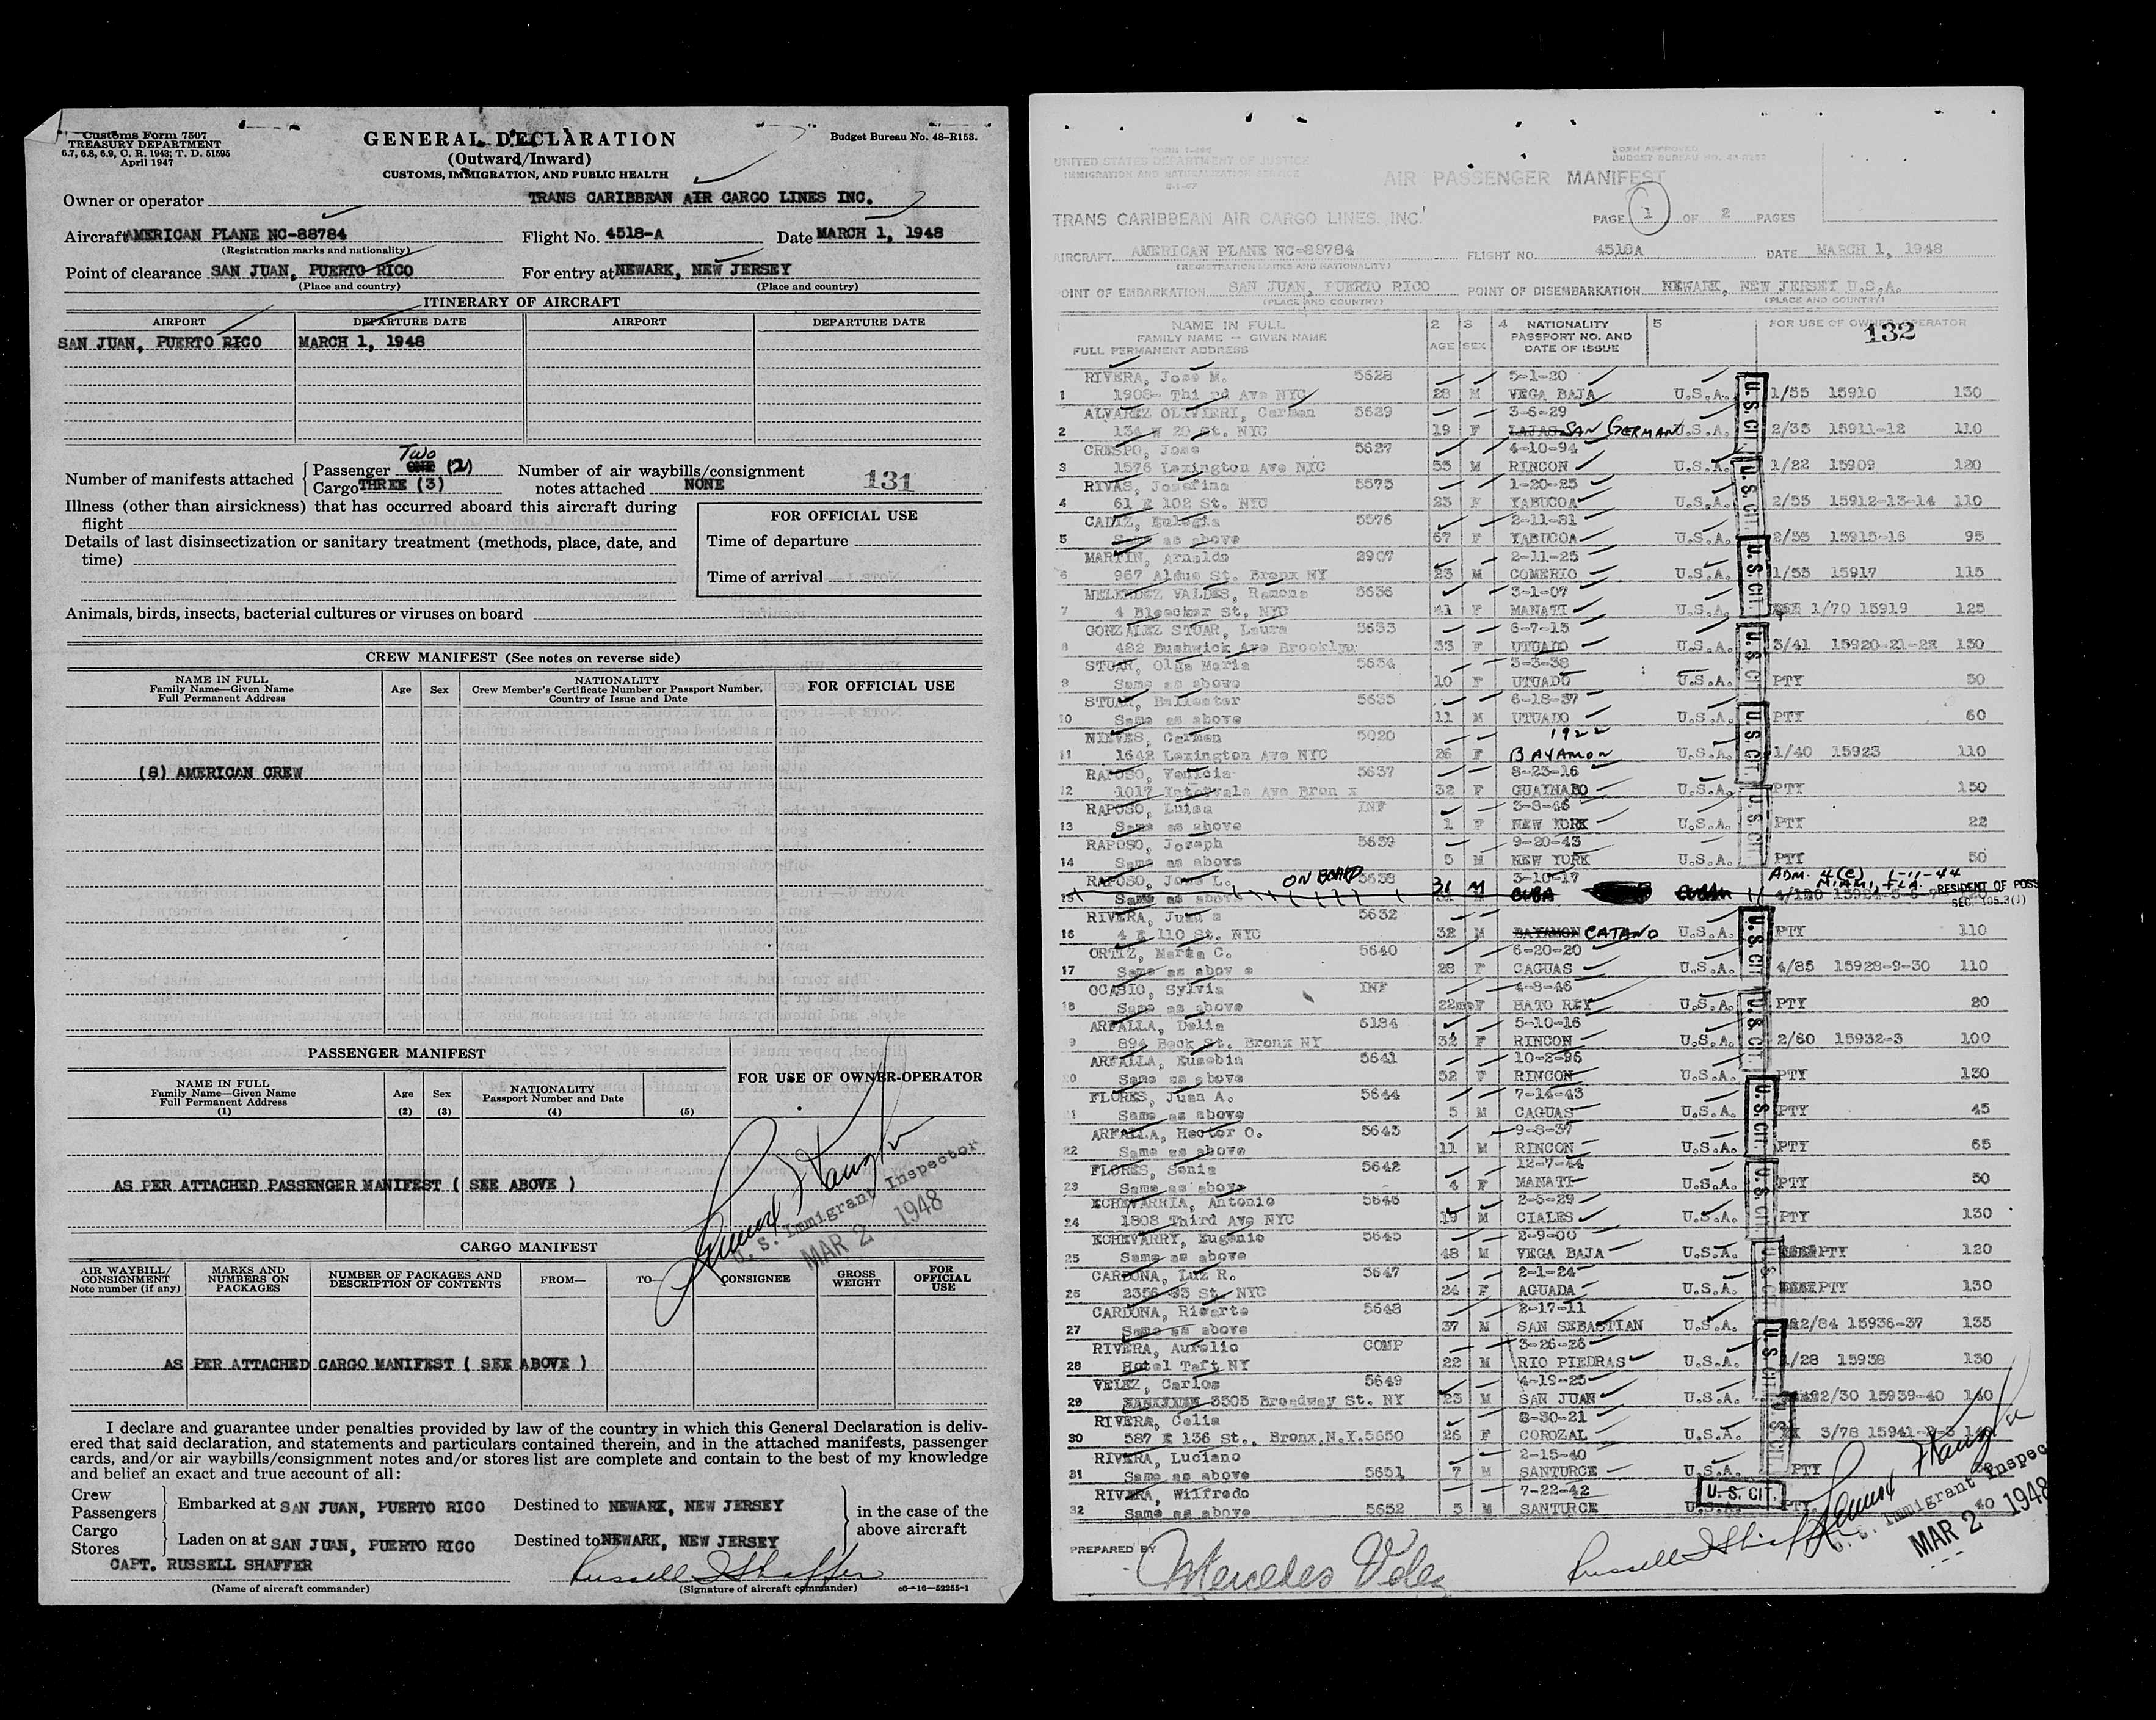 Customs Form 7507
TREASURY DEPARTMENT
6.7, 6.8, 6.9, C. R. 1943; T. D. 51595
April 1947
GENERAL DECLARATION
(Outward/Inward)
CUSTOMS, IMMIGRATION, AND PUBLIC HEALTH
Budget Bureau No. 48-R153.
Owner or operator TRANS CARIBBEAN AIR CARGO LINES INC.
Aircraft AMERICAN PLANE NC-88784 Flight No. 4518-A Date MARCH 1, 1948
(Registration marks and nationality)
Point of clearance SAN JUAN, PUERTO RICO For entry at NEWARK, NEW JERSEY
(Place and country) (Place and country)
ITINERARY OF AIRCRAFT
AIRPORT DEPARTURE DATE AIRPORT DEPARTURE DATE
SAN JUAN, PUERTO RICO MARCH 1, 1948
Two
Number of manifests attached Passenger ONE (2) Number of air waybills/consignment
Cargo THREE (3) notes attached NONE
131
Illness (other than airsickness) that has occurred aboard this aircraft during
flight
Details of last disinsectization or sanitary treatment (methods, place, date, and
time)
FOR OFFICIAL USE
Time of departure
Time of arrival
Animals, birds, insects, bacterial cultures or viruses on board
CREW MANIFEST (See notes on reverse side)
NAME IN FULL
Family Name—Given Name
Full Permanent Address
Age Sex
NATIONALITY
Crew Member's Certificate Number or Passport Number,
Country of Issue and Date
FOR OFFICIAL USE
(8) AMERICAN CREW
PASSENGER MANIFEST
NAME IN FULL
Family Name—Given Name
Full Permanent Address
(1)
Age
(2)
Sex
(3)
NATIONALITY
Passport Number and Date
(4)
(5)
FOR USE OF OWNER-OPERATOR
AS PER ATTACHED PASSENGER MANIFEST ( SEE ABOVE )
U. S. Immigrant Inspector
MAR 2 1948
CARGO MANIFEST
AIR WAYBILL/
CONSIGNMENT
Note number (if any)
MARKS AND
NUMBERS ON
PACKAGES
NUMBER OF PACKAGES AND
DESCRIPTION OF CONTENTS
FROM—
TO—
CONSIGNEE
GROSS
WEIGHT
FOR
OFFICIAL
USE
AS PER ATTACHED CARGO MANIFEST ( SEE ABOVE )
I declare and guarantee under penalties provided by law of the country in which this General Declaration is deliv-
ered that said declaration, and statements and particulars contained therein, and in the attached manifests, passenger
cards, and/or air waybills/consignment notes and/or stores list are complete and contain to the best of my knowledge
and belief an exact and true account of all:
Crew
Passengers Embarked at SAN JUAN, PUERTO RICO Destined to NEWARK, NEW JERSEY in the case of the
Cargo above aircraft
Stores Laden on at SAN JUAN, PUERTO RICO Destined to NEWARK, NEW JERSEY
CAPT. RUSSELL SHAFFER Russell J Shaffer
(Name of aircraft commander) (Signature of aircraft commander) c6—16—52255-1
UNITED STATES DEPARTMENT OF JUSTICE
IMMIGRATION AND NATURALIZATION SERVICE
FORM APPROVED
AIR PASSENGER MANIFEST
TRANS CARIBBEAN AIR CARGO LINES, INC. PAGE 1 OF 2 PAGES
AIRCRAFT AMERICAN PLANE NC-88784 FLIGHT NO. 4518A DATE MARCH 1, 1948
(REGISTRATION MARKS AND NATIONALITY)
POINT OF EMBARKATION SAN JUAN, PUERTO RICO POINT OF DISEMBARKATION NEWARK, NEW JERSEY U.S.A.
(PLACE AND COUNTRY) (PLACE AND COUNTRY)
1 NAME IN FULL 2 3 4 NATIONALITY 5 FOR USE OF OWNER-OPERATOR
FAMILY NAME -- GIVEN NAME AGE SEX PASSPORT NO. AND 132
FULL PERMANENT ADDRESS DATE OF ISSUE
RIVERA, Jose M. 5628 5-1-20
1 1908- Third Ave NYC 28 M VEGA BAJA U.S.A. 1/55 15910 130
ALVAREZ OLIVIERI, Carmen 5629 3-6-29
2 134 W 20 St. NYC 19 F LAJAS SAN GERMAN U.S.A. 2/35 15911-12 110
CRESPO, Jose 5627 4-10-94
3 1576 Lexington Ave NYC 55 M RINCON U.S.A. 1/22 15909 120
RIVAS, Josefina 5575 1-20-25
4 61 E 102 St. NYC 23 F YABUCOA U.S.A. 2/55 15912-13-14 110
CADIZ, Eulogia 5576 2-11-81
5 Same as above 67 F YABUCOA U.S.A. 2/55 15915-16 95
MARTIN, Arnaldo 2907 2-11-25
6 967 Aldus St. Bronx NY 23 M COMERIO U.S.A. 1/55 15917 115
MELENDEZ VALDES, Ramona 5636 3-1-07
7 4 Bleecker St. NYC 41 F MANATI U.S.A. 1/70 15919 125
GONZALEZ STUAR, Laura 5633 6-7-15
8 482 Bushwick Ave Brooklyn 33 F UTUADO U.S.A. 3/41 15920-21-22 130
STUAR, Olga Maria 5634 3-3-38
9 Same as above 10 F UTUADO U.S.A. PTY 50
STUAR, Ballester 5635 6-18-37
10 Same as above 11 M UTUADO U.S.A. PTY 60
NIEVES, Carmen 5020 1922
11 1642 Lexington Ave NYC 26 F BAYAMON U.S.A. 1/40 15923 110
RAPOSO, Venicia 5637 8-23-16
12 1017 Intervale Ave Bronx 32 F GUAYNABO U.S.A. PTY 150
RAPOSO, Luisa INF 3-8-46
13 Same as above 1 F NEW YORK U.S.A. PTY 22
RAPOSO, Joseph 5639 9-20-43
14 Same as above 5 M NEW YORK U.S.A. PTY 50
RAPOSO, Jose L. ON BOARD 5638 3-10-17 ADM. 4(C) 1-11-44
MIAMI, FLA.
15 Same as above 31 M CUBA CUBAN RESIDENT OF POSS
SEC. 105.3(1)
RIVERA, Juan 5632
16 4 E 110 St. NYC 32 M BAYAMON CATANO U.S.A. PTY 110
ORTIZ, Maria C. 5640 6-20-20
17 Same as above 28 F CAGUAS U.S.A. 4/85 15928-9-30 110
OCASIO, Sylvia INF 4-8-46
18 Same as above 22mo F HATO REY U.S.A. PTY 20
ARFALLA, Delia 6134 5-10-16
9 894 Beck St. Bronx NY 32 F RINCON U.S.A. 2/60 15932-3 100
ARFALLA, Eusebia 5641 10-2-95
20 Same as above 52 F RINCON U.S.A. PTY 130
FLORES, Juan A. 5644 7-14-43
21 Same as above 5 M CAGUAS U.S.A. PTY 45
ARFALLA, Hector O. 5643 9-8-37
22 Same as above 11 M RINCON U.S.A. PTY 65
FLORES, Sonia 5642 12-7-44
23 Same as above 4 F MANATI U.S.A. PTY 50
ECHEVARRIA, Antonio 5646 2-5-29
24 1808 Third Ave NYC 19 M CIALES U.S.A. PTY 130
ECHEVARRY, Eugenio 5645 2-9-00
25 Same as above 48 M VEGA BAJA U.S.A. PTY 120
CARDONA, Luz R. 5647 2-1-24
26 St. NYC 24 F AGUADA U.S.A. PTY 130
CARDONA, Ricarte 5648 2-17-11
27 Same as above 37 M SAN SEBASTIAN U.S.A. 2/84 15936-37 135
RIVERA, Aurelio COMP 3-26-26
28 Hotel Taft NY 22 M RIO PIEDRAS U.S.A. 1/28 15938 130
VELEZ, Carlos 5649 4-19-25
29 3505 Broadway St. NY 23 M SAN JUAN U.S.A. 2/30 15939-40 140
RIVERA, Celia 8-30-21
30 587 E 136 St., Bronx,N.Y.5650 26 F COROZAL U.S.A. 3/78 15941-2-3
RIVERA, Luciano 2-15-40
31 Same as above 5651 7 M SANTURCE U.S.A. PTY
RIVERA, Wilfredo 7-22-42
32 Same as above 5652 5 M SANTURCE U.S.A. PTY 40
U.S. CIT.
U.S. CIT.
U.S. CIT.
U.S. CIT.
U.S. CIT.
U.S. CIT.
U.S. CIT.
U.S. CIT.
U.S. CIT.
U.S. CIT.
U.S. CIT.
U.S. CIT.
U.S. CIT.
U.S. CIT.
PREPARED BY Mercedes Velez Russell J Shaffer
U. S. Immigrant Inspec
MAR 2 1948